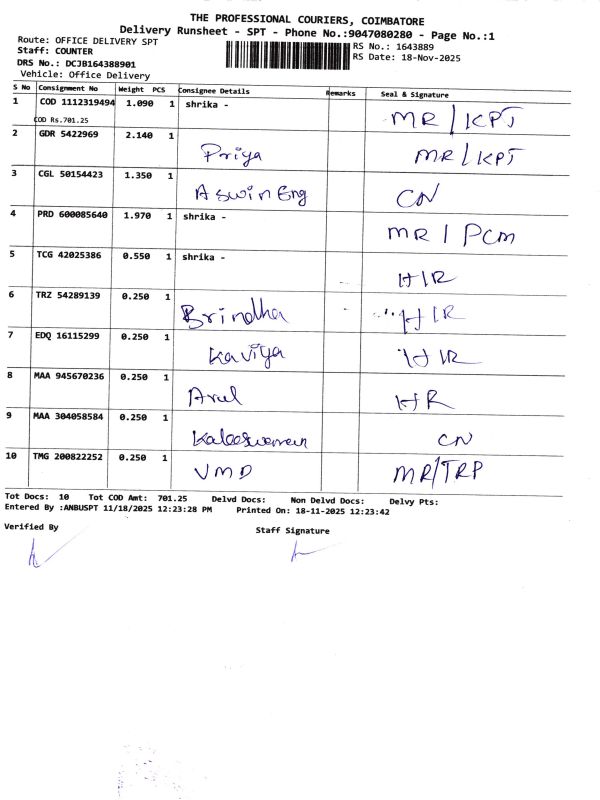 THE PROFESSIONAL COURIERS, COIMBATORE
Delivery Runsheet - SPT - Phone No.:9047080280 - Page No.:1
Route: OFFICE DELIVERY SPT
RS No.: 1643889
Staff: COUNTER
RS Date: 18-Nov-2025
DRS No.: DCJB164388901
Vehicle: Office Delivery
S No Consignment No Weight PCS Consignee Details Remarks Seal & Signature
1 COD 1112319494 1.090 1 shrika - MR/KPJ
COD Rs.701.25
2 GDR 5422969 2.140 1 Priya MR/KPJ
3 CGL 50154423 1.350 1 Aswin Eng CN
4 PRD 600085640 1.970 1 shrika - MR | PCM
5 TCG 42025386 0.550 1 shrika - HIR
6 TRZ 54289139 0.250 1 Brindha HIR
7 EDQ 16115299 0.250 1 Kaviya HIR
8 MAA 945670236 0.250 1 Arul HR
9 MAA 304058584 0.250 1 CN
10 TMG 200822252 0.250 1 VMD MR/TRP
Tot Docs: 10 Tot COD Amt: 701.25 Delvd Docs: Non Delvd Docs: Delvy Pts:
Entered By :ANBUSPT 11/18/2025 12:23:28 PM Printed On: 18-11-2025 12:23:42
Verified By Staff Signature